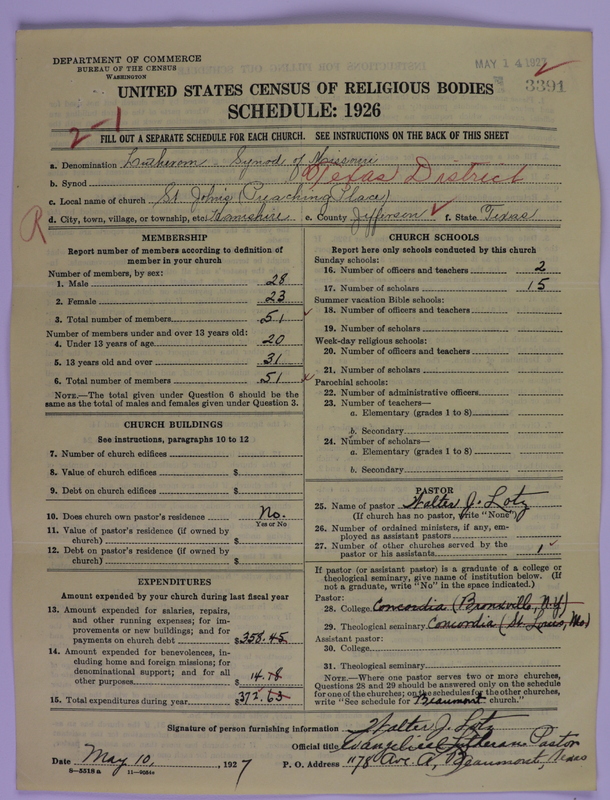 DEPARTMENT OF COMMERCE
BUREAU OF THE CENSUS
WASHINGTON
MAY 14 1927
3391
UNITED STATES CENSUS OF RELIGIOUS BODIES
SCHEDULE: 1926
2-1
FILL OUT A SEPARATE SCHEDULE FOR EACH CHURCH. SEE INSTRUCTIONS ON THE BACK OF THIS SHEET
a. Denomination Lutheran Synod of Missouri
b. Synod Texas District
c. Local name of church St. Johns (Preaching Place)
R
d. City, town, village, or township, etc. Hamshire e. County Jefferson f. State Texas
MEMBERSHIP
Report number of members according to definition of
member in your church
Number of members, by sex:
1. Male 28
2. Female 23
3. Total number of members 51
Number of members under and over 13 years old:
4. Under 13 years of age 20
5. 13 years old and over 31
6. Total number of members 51
NOTE.—The total given under Question 6 should be
same as the total of males and females given under Question 3.
CHURCH BUILDINGS
See instructions, paragraphs 10 to 12
7. Number of church edifices
8. Value of church edifices $
9. Debt on church edifices $
10. Does church own pastor's residence No.
Yes or No
11. Value of pastor's residence (if owned by
church) $
12. Debt on pastor's residence (if owned by
church) $
EXPENDITURES
Amount expended by your church during last fiscal year
13. Amount expended for salaries, repairs,
and other running expenses; for im-
provements or new buildings; and for
payments on church debt $358.45
14. Amount expended for benevolences, in-
cluding home and foreign missions; for
denominational support; and for all
other purposes $ 14.18
15. Total expenditures during year $372.63
CHURCH SCHOOLS
Report here only schools conducted by this church
Sunday schools:
16. Number of officers and teachers 2
17. Number of scholars 15
Summer vacation Bible schools:
18. Number of officers and teachers
19. Number of scholars
Week-day religious schools:
20. Number of officers and teachers
21. Number of scholars
Parochial schools:
22. Number of administrative officers
23. Number of teachers—
a. Elementary (grades 1 to 8)
b. Secondary
24. Number of scholars—
a. Elementary (grades 1 to 8)
b. Secondary
PASTOR
25. Name of pastor Walter J. Lotz
(If church has no pastor, write "None")
26. Number of ordained ministers, if any, em-
ployed as assistant pastors
27. Number of other churches served by the
pastor or his assistants 1
If pastor (or assistant pastor) is a graduate of a college or
theological seminary, give name of institution below. (If
not a graduate, write "No" in the space indicated.)
Pastor:
28. College Concordia (Bronxville, N.Y.)
29. Theological seminary Concordia (St. Louis, Mo)
Assistant pastor:
30. College
31. Theological seminary
NOTE.—Where one pastor serves two or more churches,
Questions 28 and 29 should be answered only on the schedule
for one of the churches; on the schedules for the other churches,
write "See schedule for Beaumont church."
Signature of person furnishing information Walter J. Lotz
Official title Evangelical Lutheran Pastor
Date May 10, , 1927 P. O. Address 1178 Ave. A, Beaumont, Texas
8—5518 a 11—9054